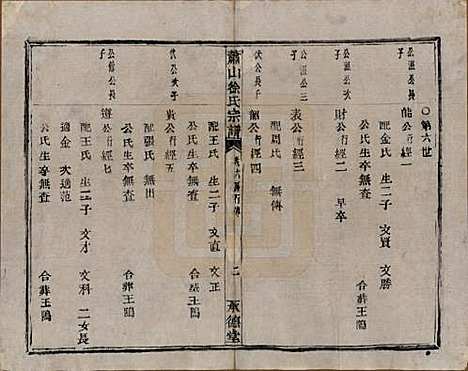 ○第六世
公還公長子
能公行經一
配金氏 生二子 文賢 文勝
公氏生卒無查 合葬王鴎
公還公次子
財公行經二 早卒
公還公三子
表公行經三
配周氏 無傳
伏公長子
公行經四
蕭山徐氏宗譜
卷六 二
承德堂
配王氏 生二子 文直 文正
公氏生卒無查 合葬王鴎
伏公次子
公行經五
配張氏 無出
公氏生卒無查 合葬王鴎
公長子
遊公行經六
配王氏 生二子 文才 文科 二女長
適金 次適范
公氏生卒無查 合葬王鴎